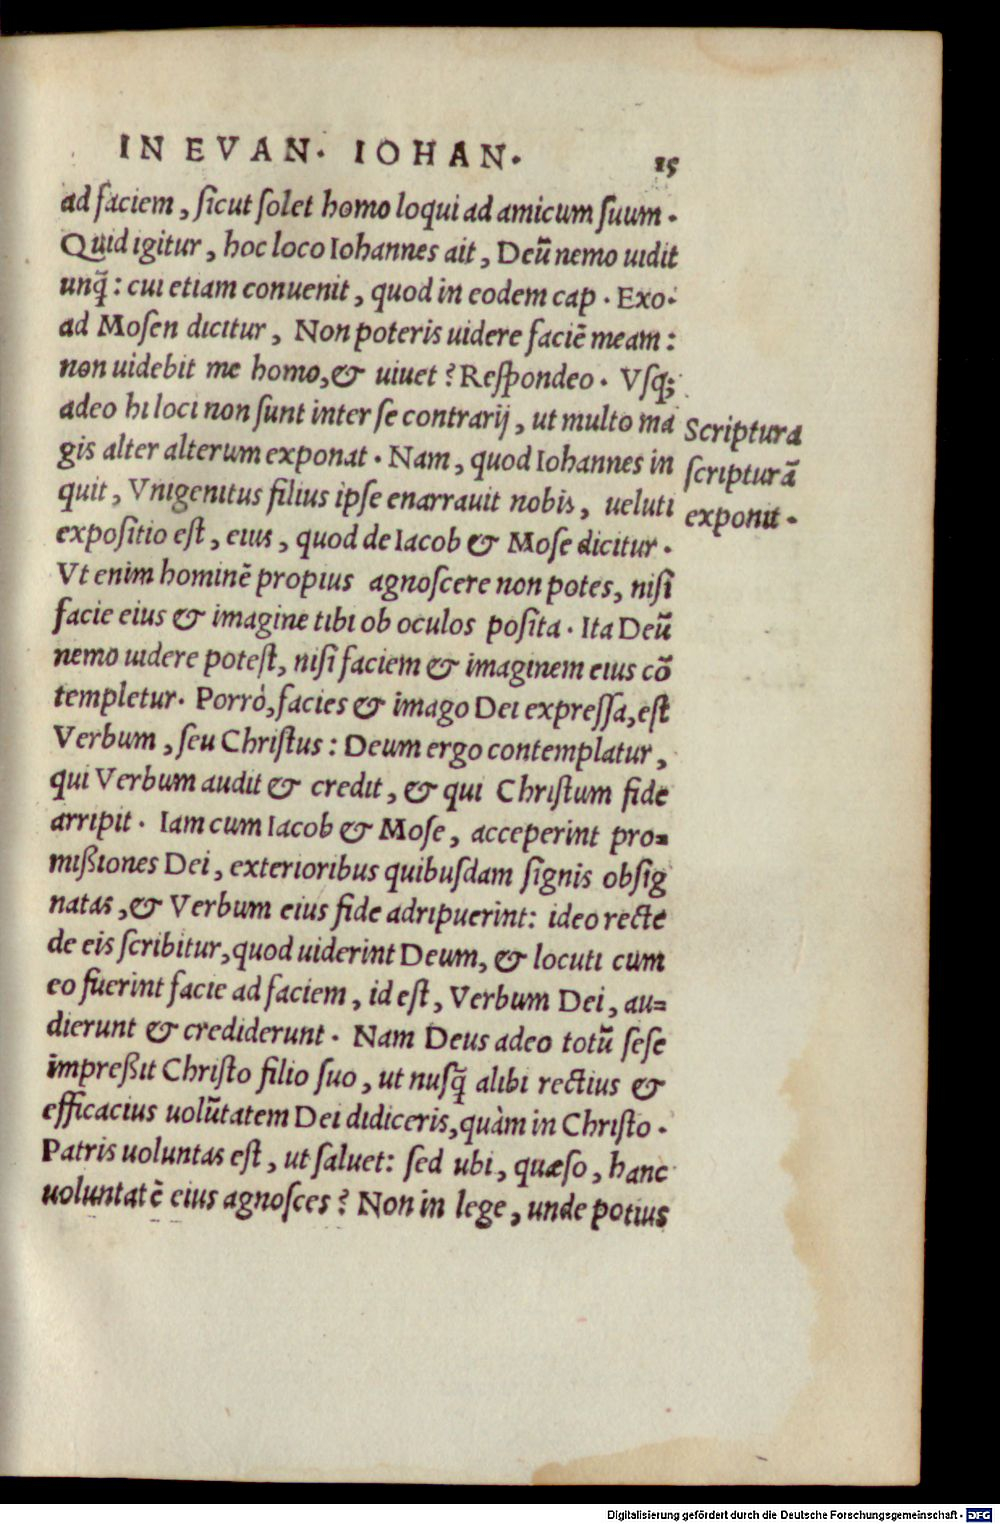 IN EVAN. IOHAN. 15
ad faciem, ſicut ſolet homo loqui ad amicum ſuum.
Quid igitur, hoc loco Iohannes ait, Deū nemo uidit
unq̃: cui etiam conuenit, quod in eodem cap. Exo.
ad Moſen dicitur, Non poteris uidere faciē meam:
non uidebit me homo, & uiuet? Reſpondeo. Vſq;
adeo hi loci non ſunt inter ſe contrarij, ut multo ma
gis alter alterum exponat. Nam, quod Iohannes in
quit, Vnigenitus filius ipſe enarrauit nobis, ueluti
expoſitio eſt, eius, quod de Iacob & Moſe dicitur.
Vt enim hominē propius agnoſcere non potes, niſi
facie eius & imagine tibi ob oculos poſita. Ita Deū
nemo uidere poteſt, niſi faciem & imaginem eius cō
templetur. Porrò, facies & imago Dei expreſſa, eſt
Verbum, ſeu Chriſtus: Deum ergo contemplatur,
qui Verbum audit & credit, & qui Chriſtum fide
arripit. Iam cum Iacob & Moſe, acceperint pro=
mißiones Dei, exterioribus quibuſdam ſignis obſig
natas, & Verbum eius fide adripuerint: ideo recte
de eis ſcribitur, quod uiderint Deum, & locuti cum
eo fuerint facie ad faciem, id eſt, Verbum Dei, au=
dierunt & crediderunt. Nam Deus adeo totū ſeſe
impreßit Chriſto filio ſuo, ut nuſq̃ alibi rectius &
efficacius uolūtatem Dei didiceris, quàm in Chriſto.
Patris uoluntas eſt, ut ſaluet: ſed ubi, quæſo, hanc
uoluntatē eius agnoſces? Non in lege, unde potius
Scriptura
ſcripturā
exponit.
Digitalisierung gefördert durch die Deutsche Forschungsgemeinschaft - DFG